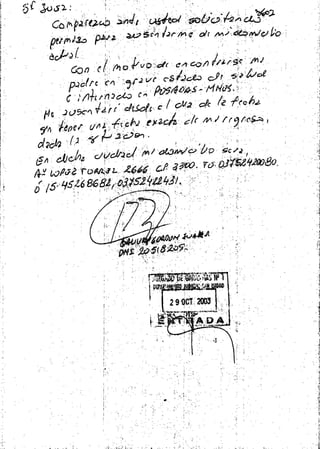 Sr JUEZ:
Comparezco ante usted solicitando
permiso para ausentarme de mi domicilio
actual.
Con el motivo de encontrarse mi
padre en grave estado de salud
e internado en POSADAS-MNES.
Me ausentaré desde el día de la fecha
sin tener una fecha exacta de mi regreso,
dada la situación.
En dicha ciudad mi domicilio será,
Av LOPEZ TORRES 2666 CP 3300. TE: 03752420080.
ó 15-45268682, 03752422431.
DNI 20518205.
29 OCT. 2003
ENTRADA